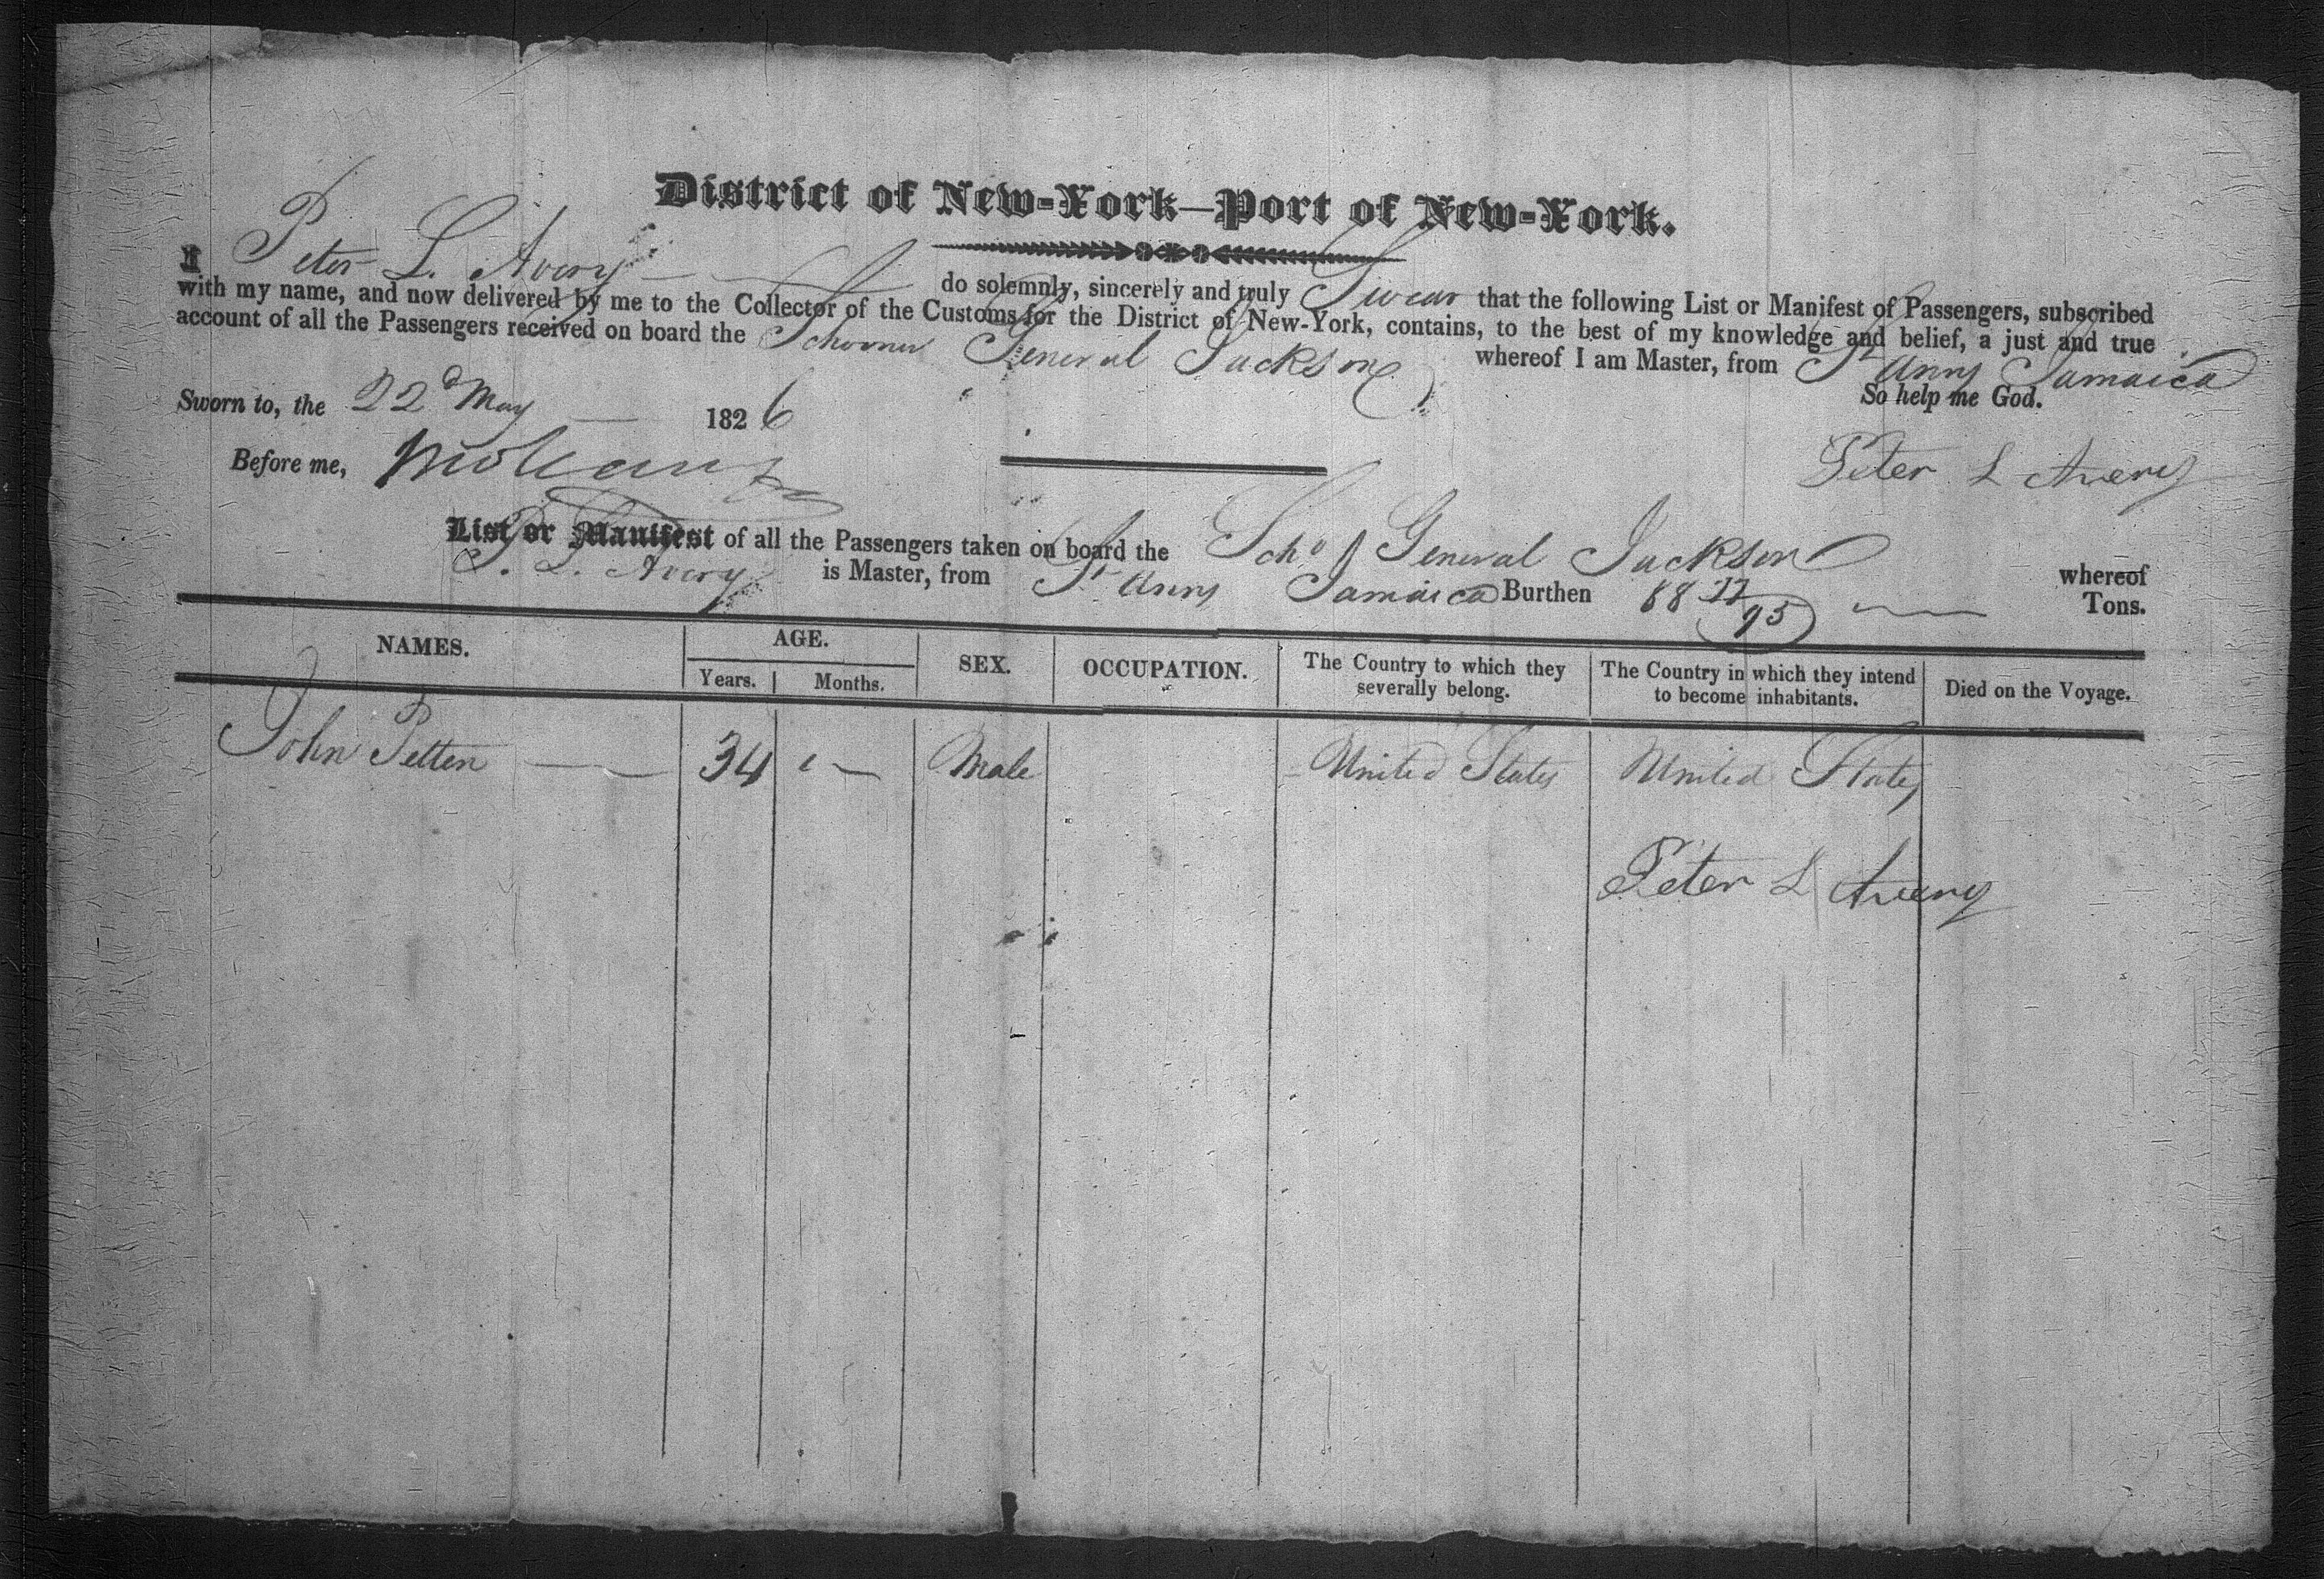 District of New-York—Port of New-York.
I Peter L. Avery do solemnly, sincerely and truly Swear that the following List or Manifest of Passengers, subscribed
with my name, and now delivered by me to the Collector of the Customs for the District of New-York, contains, to the best of my knowledge and belief, a just and true
account of all the Passengers received on board the Schooner General Jackson whereof I am Master, from St Anns Jamaica
So help me God.
Sworn to, the 22d May 1826
Before me,
Peter L Avery
List or Manifest of all the Passengers taken on board the Schr General Jackson whereof
P. L. Avery is Master, from St Anns Jamaica Burthen 88 Tons.
NAMES. AGE. SEX. OCCUPATION. The Country to which they severally belong. The Country in which they intend to become inhabitants. Died on the Voyage.
Years. Months.
John Petten 34 Male United States United States
Peter L Avery